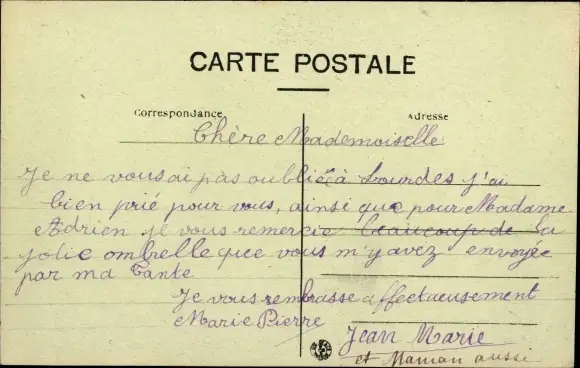 CARTE POSTALE
Correspondance
Adresse
Chère Mademoiselle
Je ne vous ai pas oubliée à Lourdes j'ai
bien prié pour vous, ainsi que pour Madame
Adrien je vous remercie beaucoup de la
jolie ombrelle que vous m'y avez envoyée
par ma Tante
Je vous rembrasse affectueusement
Marie Pierre
Jean Marie
et Maman aussi